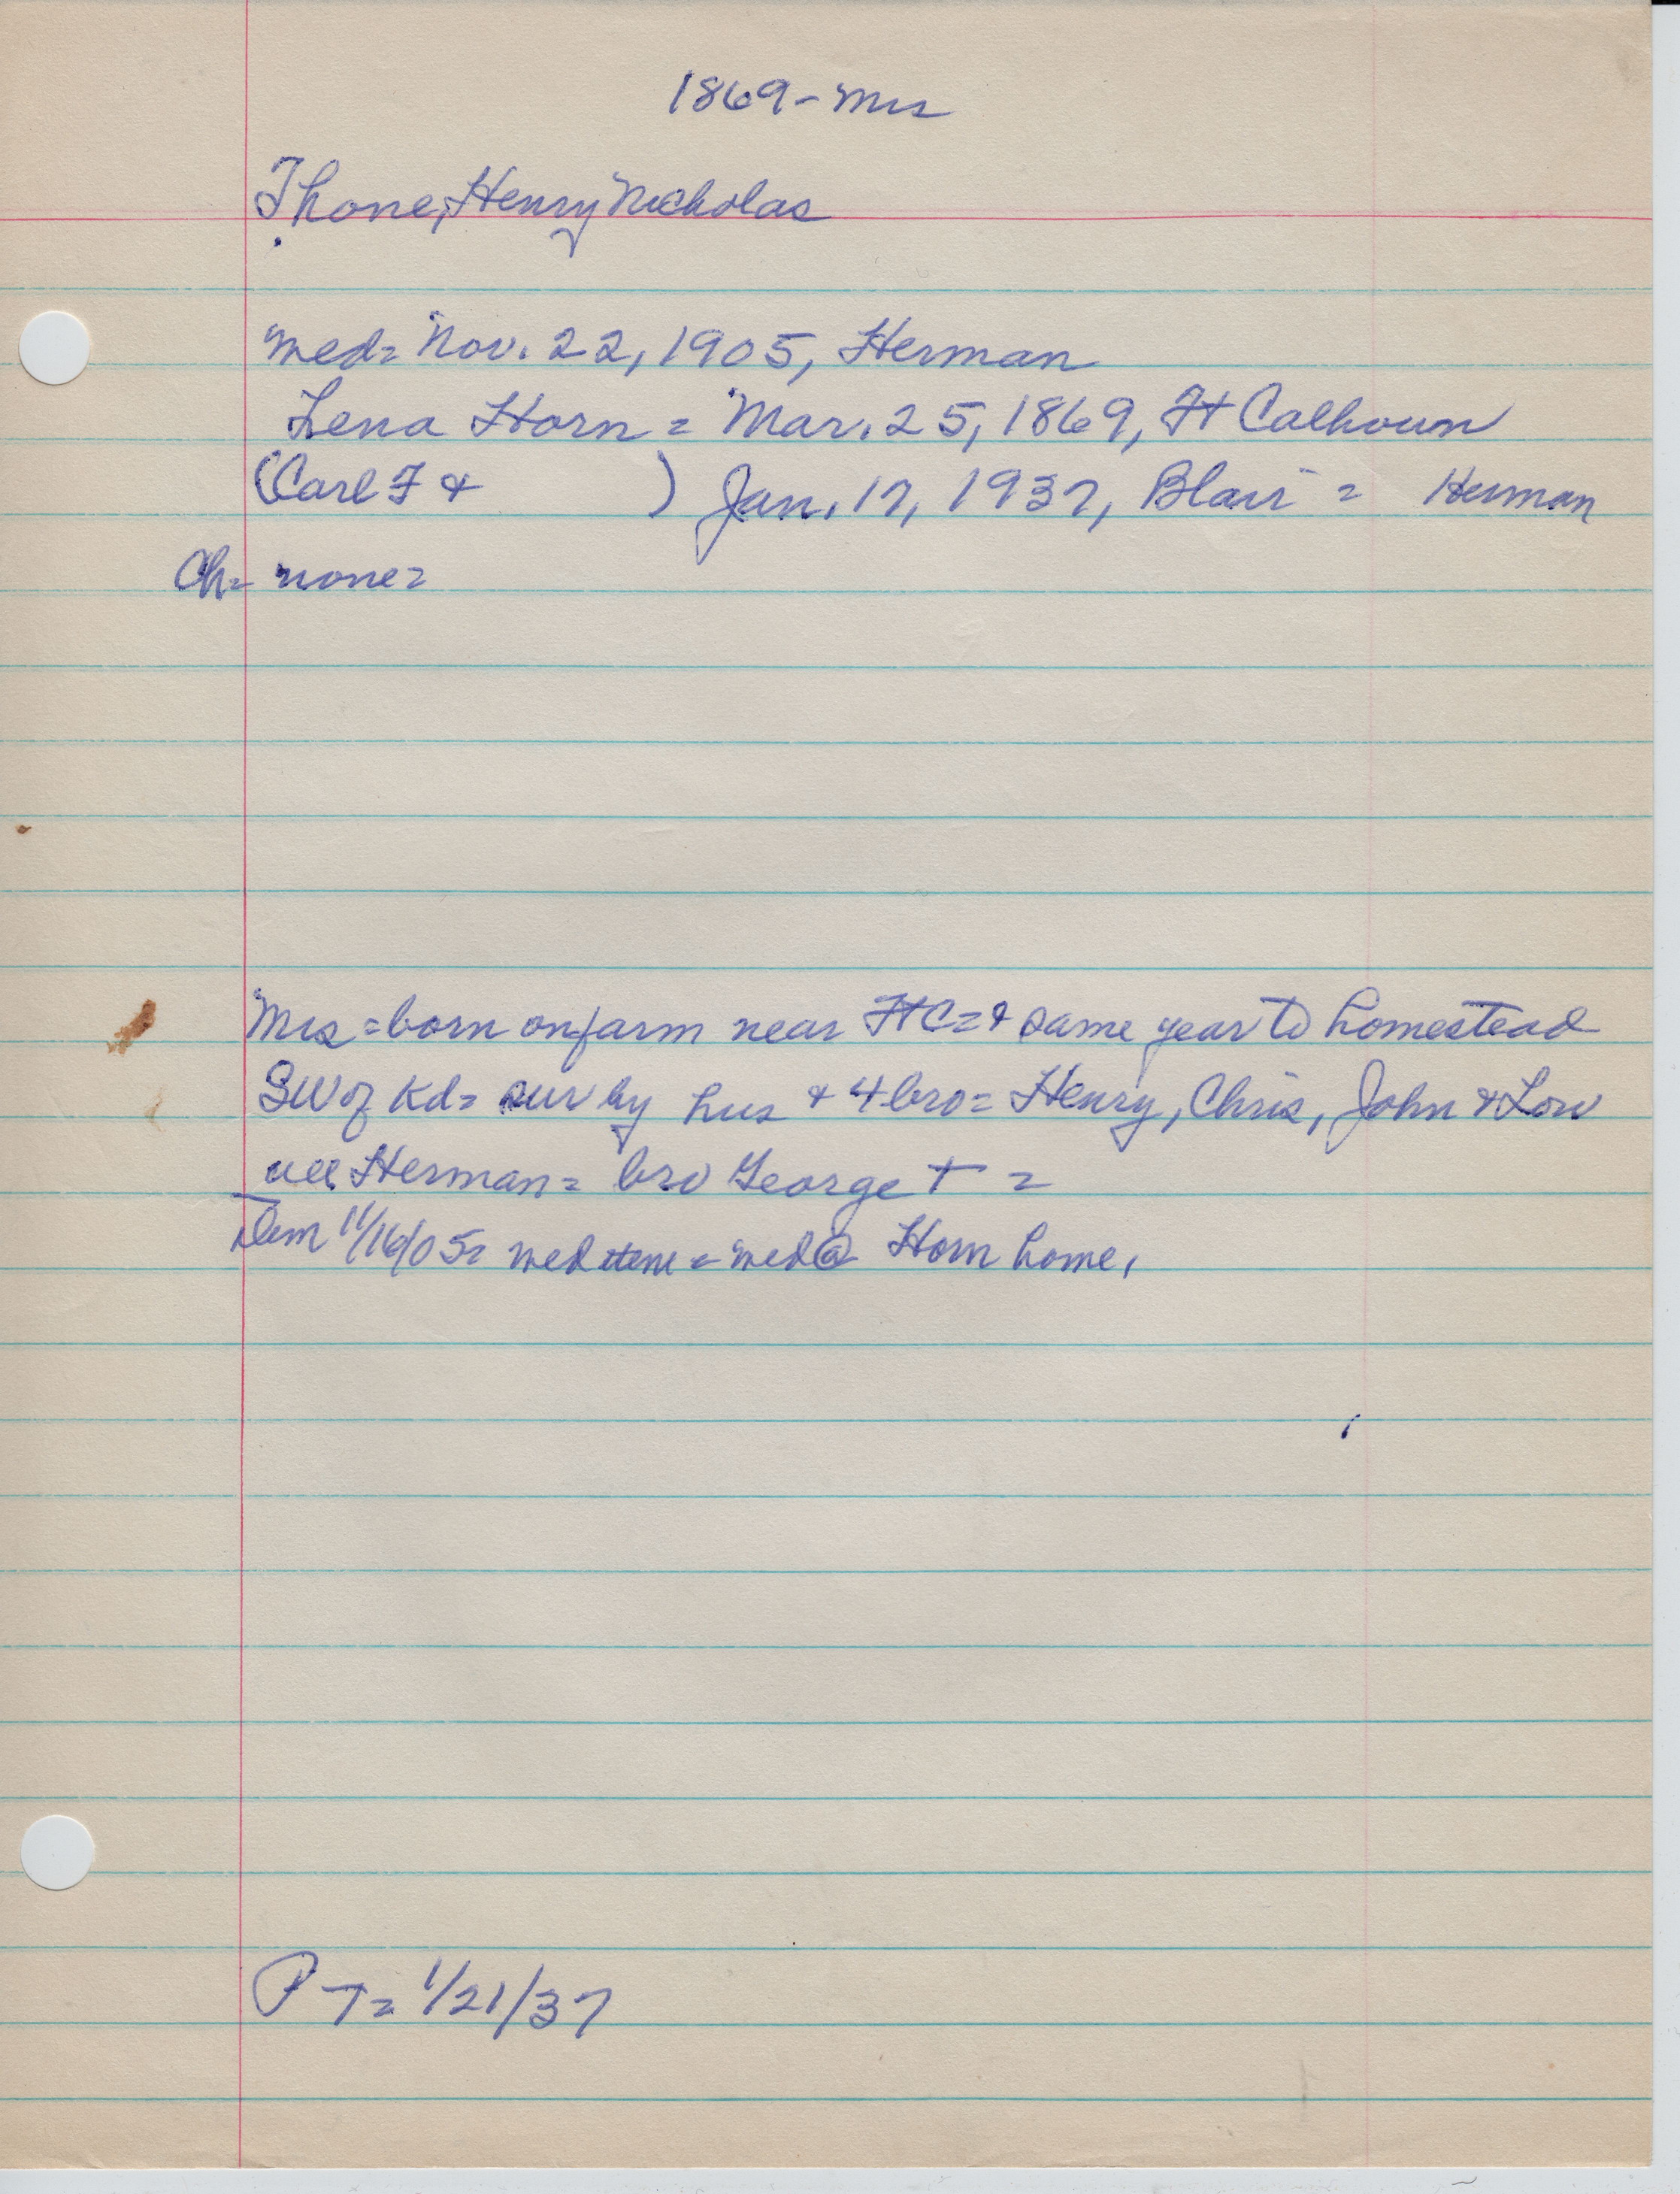 1869 - Mrs
Thone, Henry Nicholas
Wed = Nov. 22, 1905, Herman
Lena Horn = Mar. 25, 1869, Ft Calhoun
(Carl F &          ) Jan. 17, 1937, Blair = Herman
Ch = none =
Mrs = born on farm near Ft C = & same year to homestead
SW of Kd = sur by hus & 4 bro = Henry, Chris, John & Lou
all Herman = bro George + =
11/16/05 = wed item = wed @ Horn home.
P T = 1/21/37